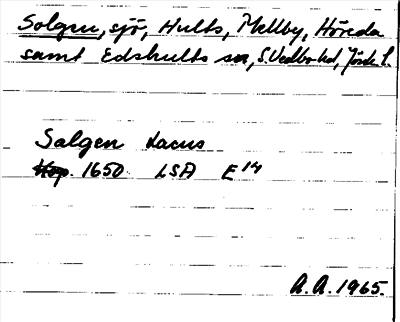 Solgen, sjö, Hults, Mellby, Höreda
samt Edshults snr, S. Vedbo hd, Jönk. l.
Salgen Lacus
1650 LSA E14
A.A. 1965.